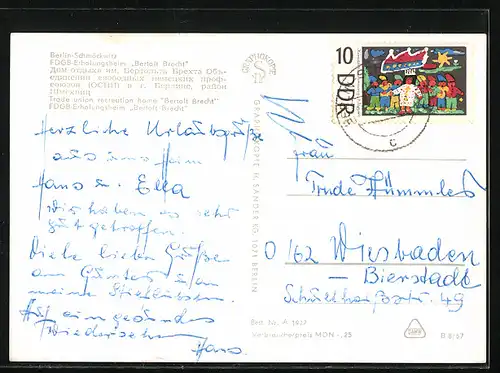 Berlin-Schmöckwitz
FDGB-Erholungsheim „Bertolt Brecht"
Дом отдыха им. Бертольта Брехта Объ-
единения свободных немецких проф-
союзов (ОСНП) в г. Берлине, район
Шмёквиц
Trade union recreation home "Bertolt Brecht"
FDGB-Erholungsheim „Bertolt Brecht"
GRAPHOKOPIE
GRAPHOKOPIE H. SANDER KG 1071 BERLIN
10
DDR
c
Herzliche Urlaubsgrüße
aus uns Heim
Hans u. Ella
Wir haben es sehr
gut getroffen.
Viele liebe Grüße
an Günter u. an
meine
Auf ein gesundes
Wiedersehen
Hans.
Frau
Trude Hümmler
62 Wiesbaden
- Bierstadt
Schultheißstr. 49
Best. Nr. A 1927
Verbraucherpreis MDN -,25
B 8/67